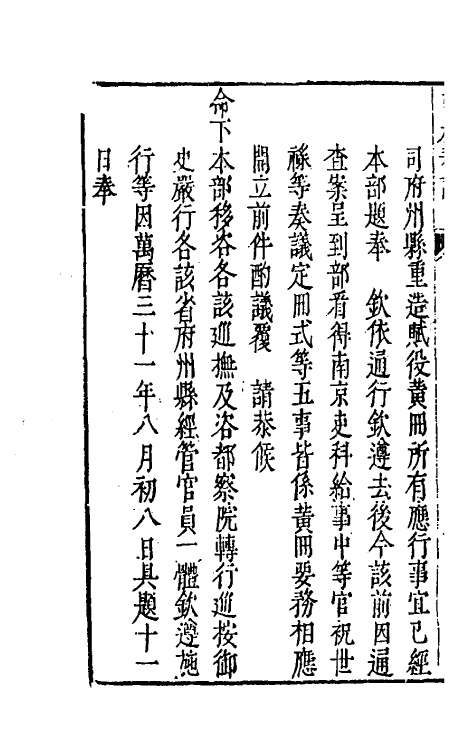 司府州縣重造賦役黄冊所有應行事宜已經
本部題奉　欽依通行欽遵去後今該前因通
查案呈到部看得南京吏科給事中等官祝世
祿等奏議定冊式等五事皆係黄冊要務相應
開立前件酌議覆　請恭候
命下本部移咨各該巡撫及咨都察院轉行巡按御
史嚴行各該省府州縣經管官員一體欽遵施
行等因萬曆三十一年八月初八日具題十一
日奉